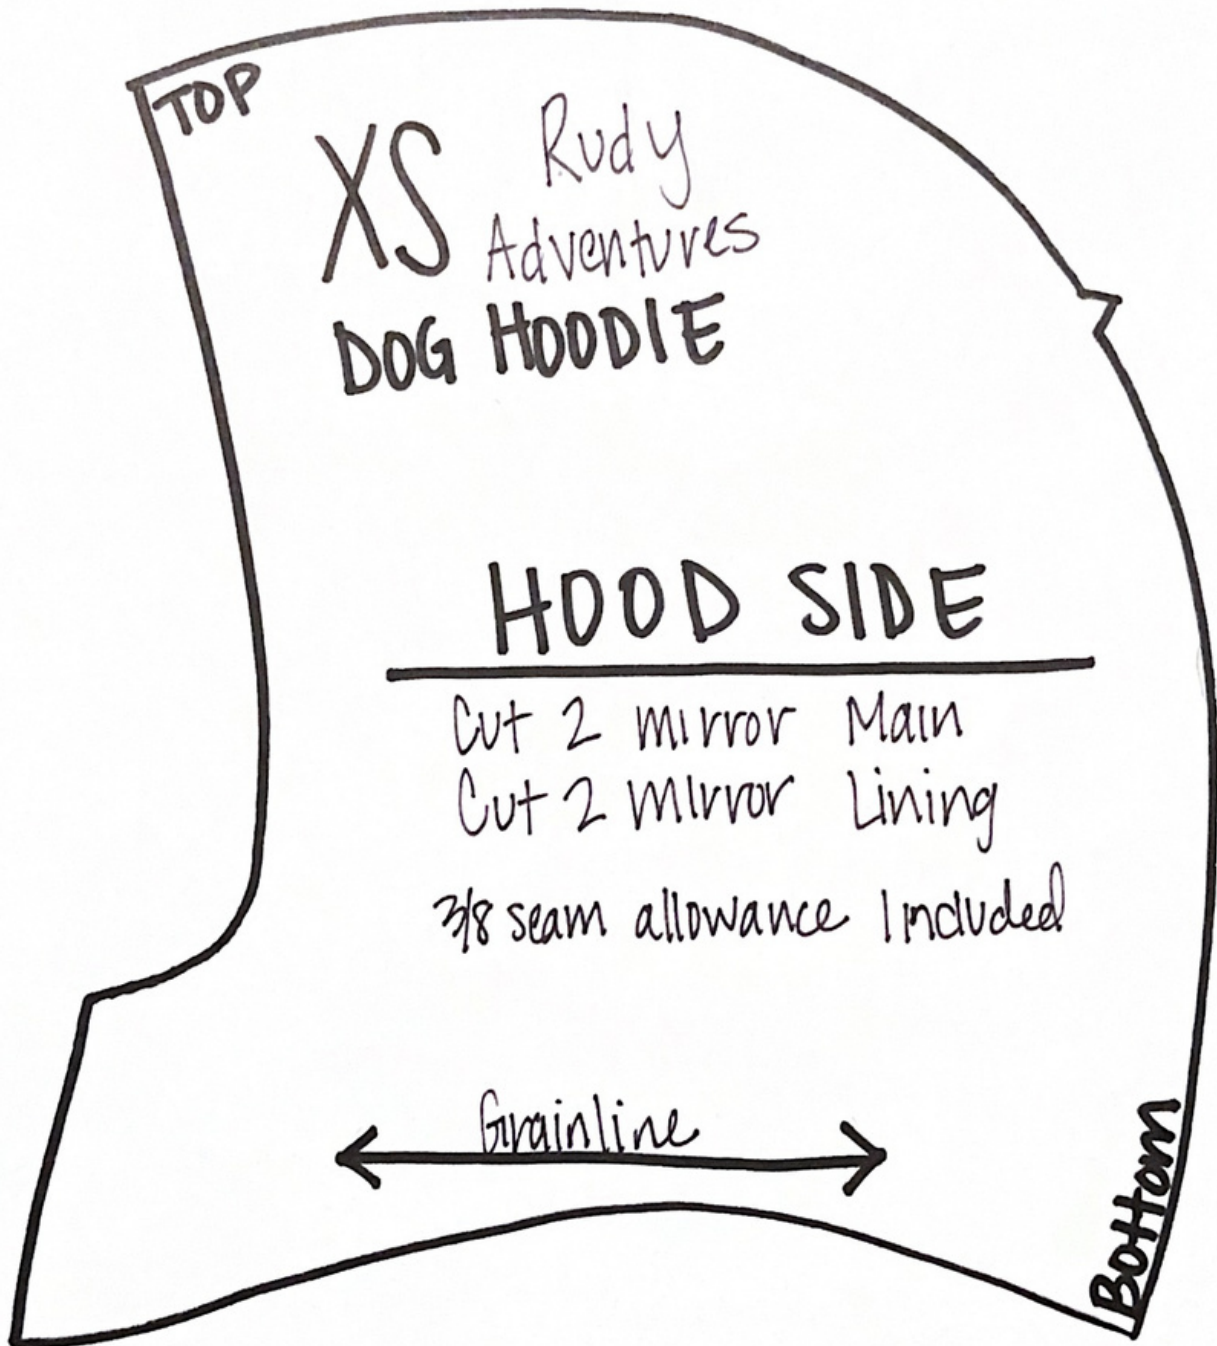 TOP
XS
Rudy
Adventures
DOG HOODIE
HOOD SIDE
Cut 2 mirror Main
Cut 2 mirror Lining
3/8 seam allowance Included
Grainline
Bottom